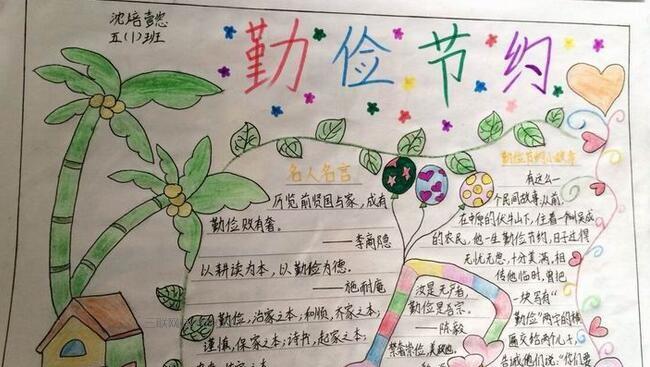 沈培
五(1)班
勤俭节约
名人名言
历览前贤国与家,成有
勤俭败有奢。
——李商隐
以耕读为本,以勤俭为德。
——施耐庵
勤俭,治家之本;和顺,齐家之本;
谨慎,保家之本;诗书,起家之本;
汝是无产者,
勤俭是吾宗。
——陈毅
勤俭节约小故事
有这么一
个民间故事,从前,
在中原的伏牛山下,住着一个叫吴成
的农民,他一生勤俭节约,日子过得
无忧无患,十分美满。相
传他临时,曾把
一块写有“
勤俭”两字的横
匾交给两个儿子,
告诫他们说:“你们要